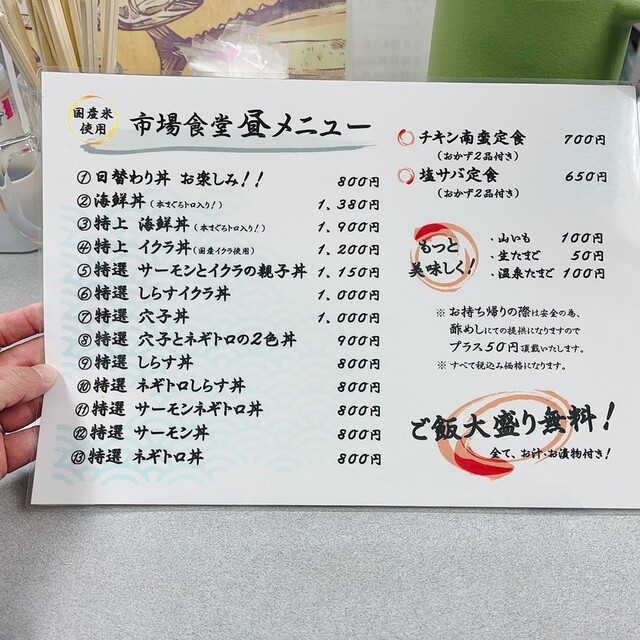 国産米
使用
市場食堂 昼メニュー
①日替わり丼 お楽しみ!! 800円
②海鮮丼(本まぐろトロ入り!) 1,380円
③特上 海鮮丼(本まぐろトロ入り!) 1,900円
④特上 イクラ丼(国産イクラ使用) 1,200円
⑤特選 サーモンとイクラの親子丼 1,150円
⑥特選 しらすイクラ丼 1,000円
⑦特選 穴子丼 1,000円
⑧特選 穴子とネギトロの2色丼 900円
⑨特選 しらす丼 800円
⑩特選 ネギトロしらす丼 800円
⑪特選 サーモンネギトロ丼 800円
⑫特選 サーモン丼 800円
⑬特選 ネギトロ丼 800円
チキン南蛮定食 700円
(おかず2品付き)
塩サバ定食 650円
(おかず2品付き)
もっと
美味しく!
・山いも 100円
・生たまご 50円
・温泉たまご 100円
※お持ち帰りの際は安全の為、
酢めしにての提供になりますので
プラス50円頂戴いたします。
※すべて税込み価格になります。
ご飯大盛り無料!
全て、お汁・お漬物付き!